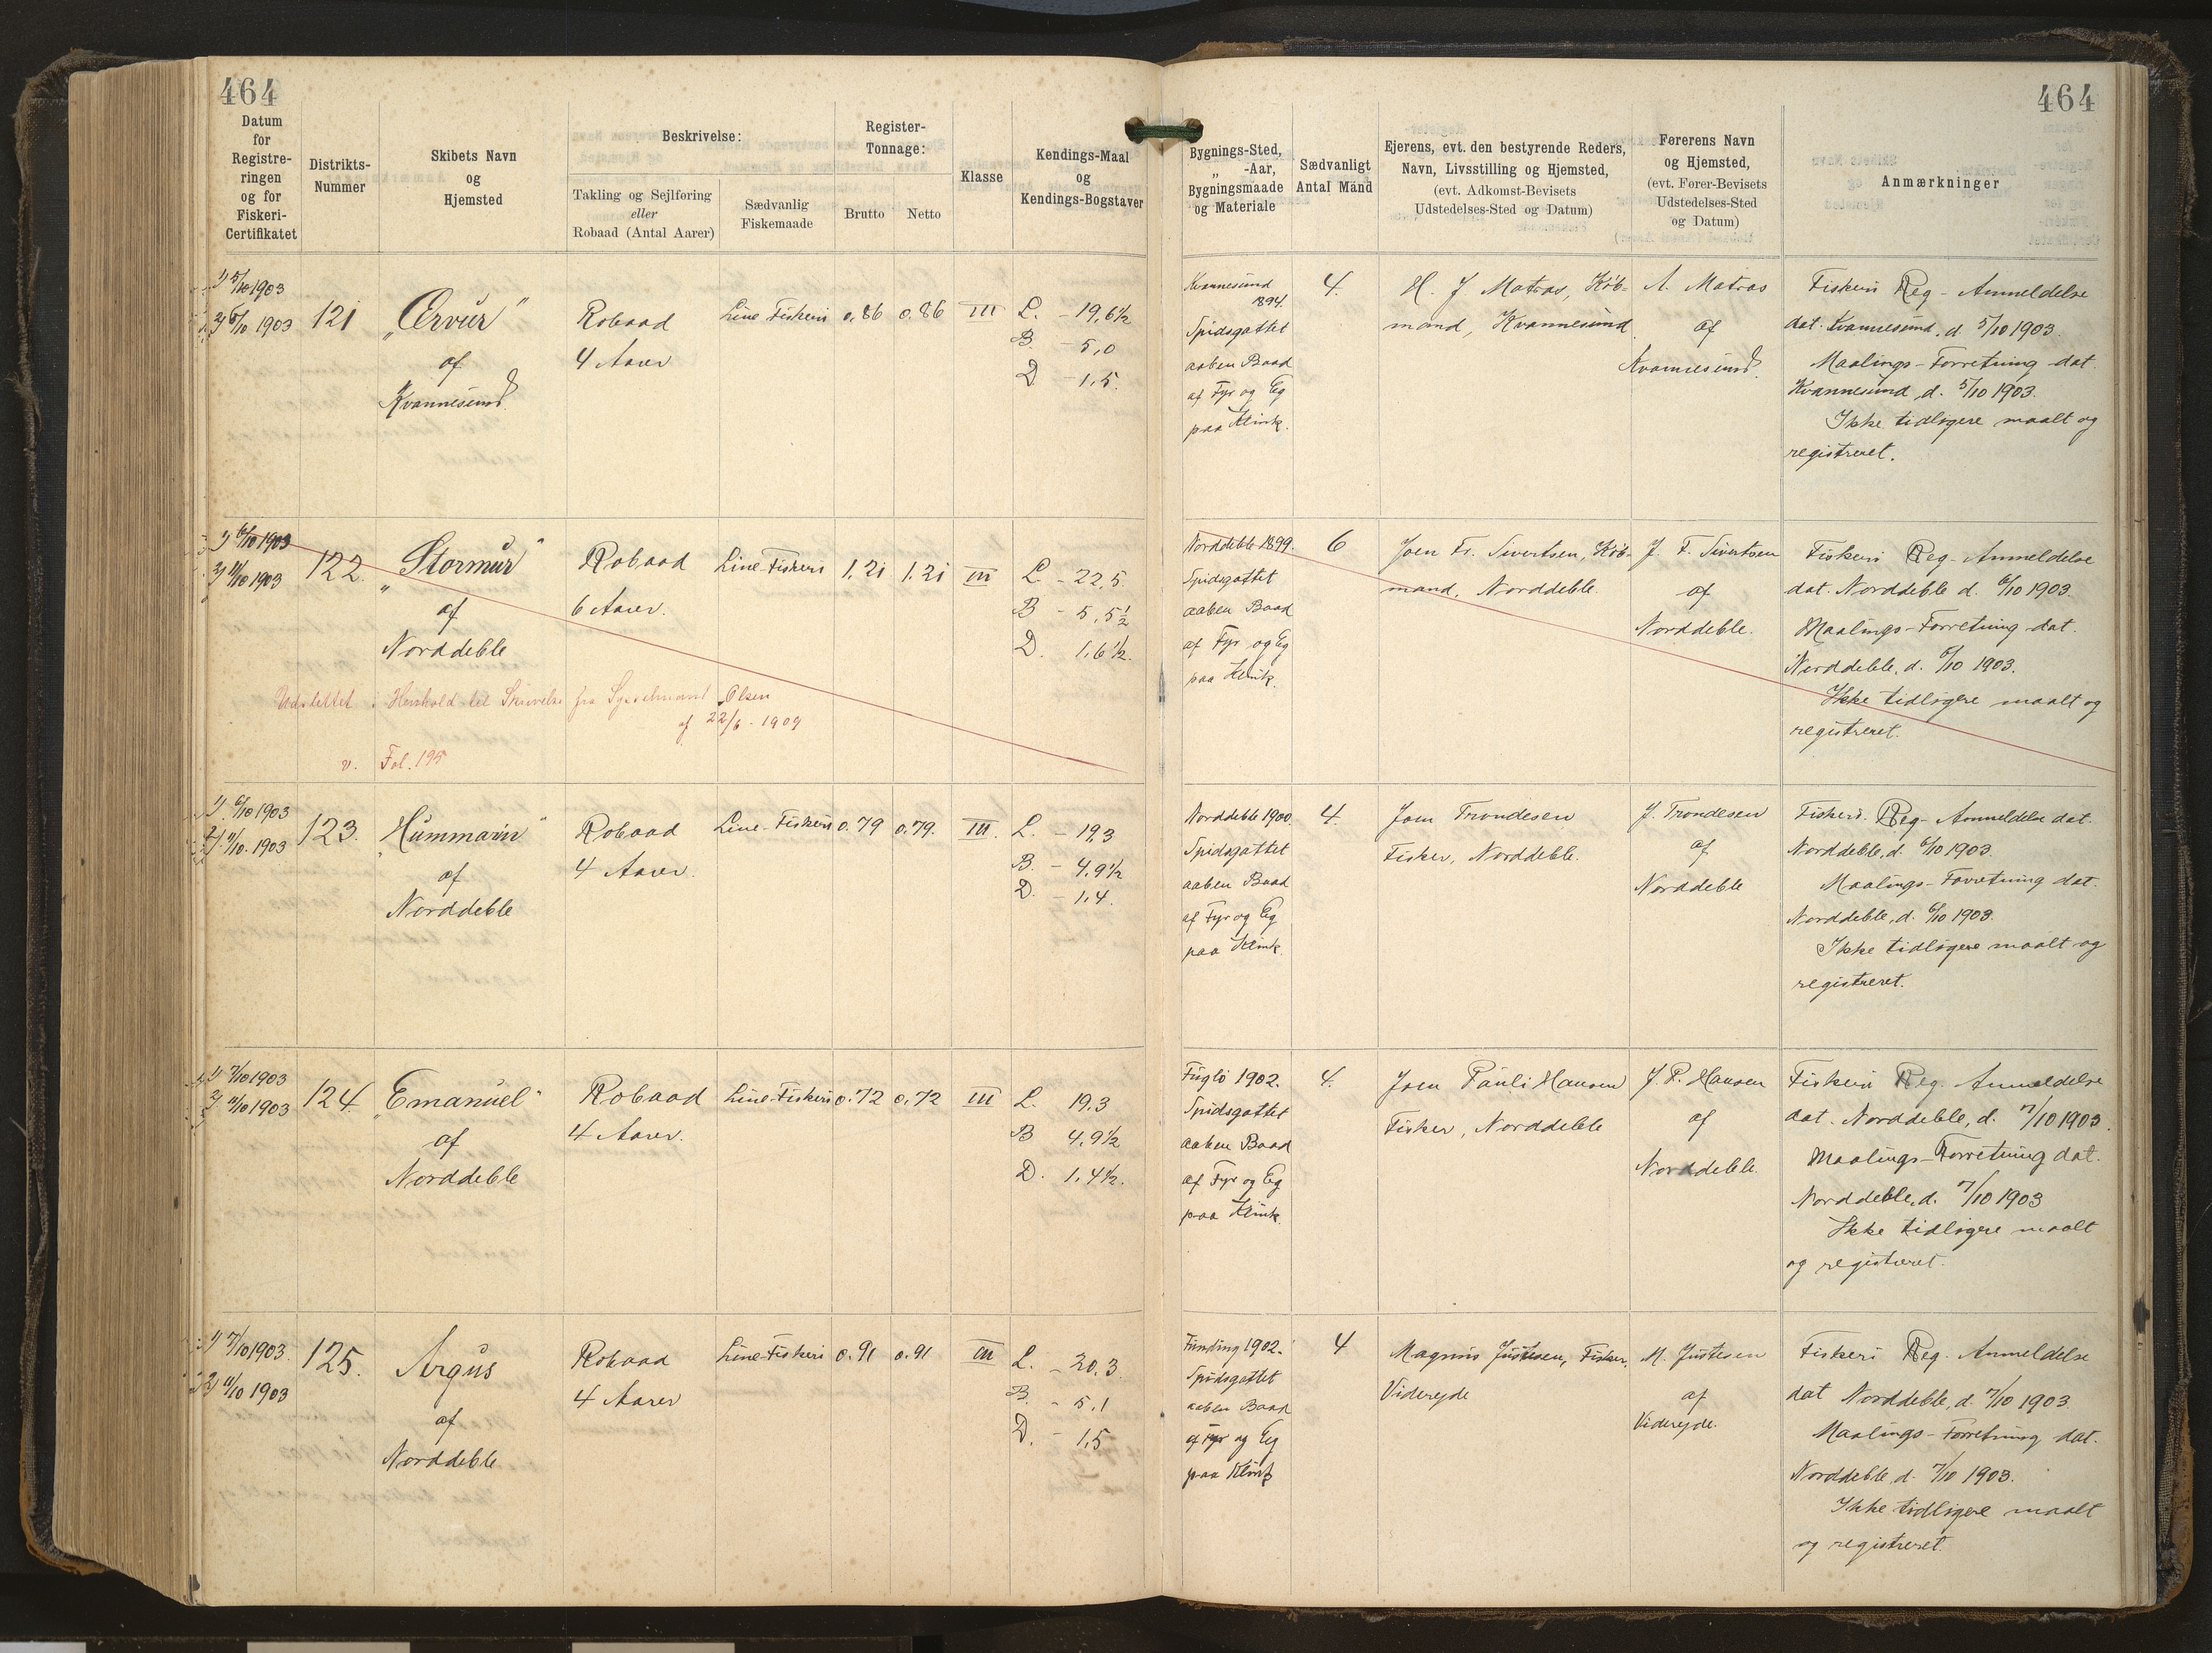 464
464
Datum
for
Registre-
ringen
og for
Fiskeri-
Certifikatet
Distrikts-
Nummer
Skibets Navn
og
Hjemsted
Beskrivelse:
Takling og Sejlføring
eller
Robaad (Antal Aarer)
Sædvanlig
Fiskemaade
Register-
Tonnage:
Brutto
Netto
Klasse
Kendings-Maal
og
Kendings-Bogstaver
Bygnings-Sted,
„ -Aar,
Bygningsmaade
og Materiale
Sædvanligt
Antal Mand
Ejerens, evt. den bestyrende Reders,
Navn, Livsstilling og Hjemsted,
(evt. Adkomst-Bevisets
Udstedelses-Sted og Datum)
Førerens Navn
og Hjemsted,
(evt. Fører-Bevisets
Udstedelses-Sted
og Datum)
Anmærkninger
1) 5/10 1903
2) 6/10 1903
121
„Ærvur"
af
Kvannesund.
Robaad
4 Aarer
Line Fiskeri
0.86
0.86
III
L. - 19,6½
B. - 5,0
D - 1,5.
Kvannesund
1894.
Spidsgattet
aaben Baad
af Fyr og Eg
paa Klink.
4.
H. J Matras, Køb-
mand, Kvannesund
A. Matras
af
Kvannesund.
Fiskeri Reg - Anmeldelse
dat. Kvannesund, d. 5/10 1903.
Maalings-Forretning dat.
Kvannesund, d. 5/10 1903.
Ikke tidligere maalt og
registreret.
1) 6/10 1903
2) 11/10 1903
122.
„Stormur"
af
Norddeble
Robaad
6 Aarer.
Line-Fiskeri
1.21
1.21
III
L - 22,5.
B - 5,5½
D. 1,6½.
Udslettet i Henhold til Skrivelse fra Sysselmand Olsen
af 22/6 - 1909
v. Fol. 195
Norddeble 1899.
Spidsgattet
aaben Baad
af Fyr og Eg
paa Klink.
6
Joen Fr. Sivertsen, Køb-
mand, Norddeble.
J. F. Sivertsen
af
Norddeble.
Fiskeri Reg - Anmeldelse
dat. Norddeble d. 6/10 1903.
Maalings-Forretning dat.
Norddeble, d. 6/10 1903.
Ikke tidligere maalt og
registreret.
1) 6/10 1903
2) 11/10. 1903
123.
„Hummarin"
af
Norddeble
Robaad
4 Aarer.
Line-Fiskeri
0.79
0.79.
III.
L. - 19,3
B. - 4,9½
D. - 1,4.
Norddeble 1900.
Spidsgattet
aaben Baad
af Fyr og Eg
paa Klink.
4.
Joen Trondesen
Fisker, Norddeble.
J. Trondesen
af
Norddeble
Fiskeri. Reg - Anmeldelse dat.
Norddeble, d. 6/10 1903.
Maalings-Forretning dat.
Norddeble, d. 6/10 1903.
Ikke tidligere maalt og
registreret.
1) 7/10 1903
2) 11/10 1903
124.
„Emanuel"
af
Norddeble
Robaad
4 Aarer.
Line-Fiskeri
0.72
0.72
III
L. 19.3
B 4.9½
D. 1,4½.
Fuglö 1902.
Spidsgattet
aaben Baad
af Fyr og Eg
paa Klink.
4.
Joen Pauli Hansen
Fisker, Norddeble
J. P. Hansen
af
Norddeble.
Fiskeri Reg. Anmeldelse
dat. Norddeble, d. 7/10 1903.
Maalings-Forretning dat.
Norddeble, d. 7/10 1903
Ikke tidligere maalt
og registreret.
1) 7/10 1903.
2) 11/10 1903
125.
Argus
af
Norddeble
Robaad
4 Aarer
Line-Fiskeri
0.91
0.91
III
L. - 20,3.
B. - 5,1
D. - 1,5
Funding 1902.
Spidsgattet
aaben Baad
af Fyr og Eg
paa Klink
4
Magnus Justesen, Fisker,
Viderejde
M. Justesen
af
Viderejde.
Fiskeri Reg. Anmeldelse
dat Norddeble, d. 7/10 1903.
Maalings-Forretning dat.
Norddeble d. 7/10 1903.
Ikke tidligere maalt
og registreret.